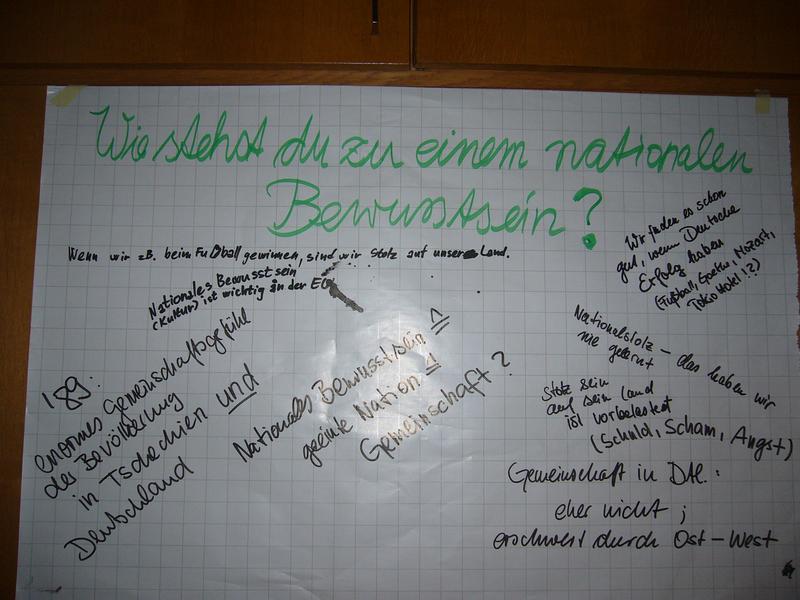 Wie stehst du zu einem nationalen
Bewusstsein?
Wenn wir zB. beim Fußball gewinnen, sind wir stolz auf unser Land.
Nationales Bewusstsein
(Kultur) ist wichtig in der EU
Wir finden es schon
gut, wenn Deutsche
Erfolg haben
(Fußball, Goethe, Mozart,
Tokio Hotel!?)
'89:
enormes Gemeinschaftsgefühl
der Bevölkerung
in Tschechien und
Deutschland
Nationales Bewusstsein ≙
geeinte Nation ≙
Gemeinschaft?
Nationalstolz – das haben wir
nie gelernt
Stolz sein
auf sein Land
ist vorbelastet
(Schuld, Scham, Angst)
Gemeinschaft in Dtl.:
eher nicht;
erschwert durch Ost – West